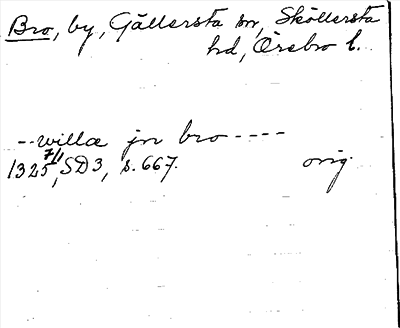 Bro, by, Gällersta sn, Sköllersta
hd, Örebro l.
--willæ jn bro----
1325 7/1, SD3, s. 667. orig.